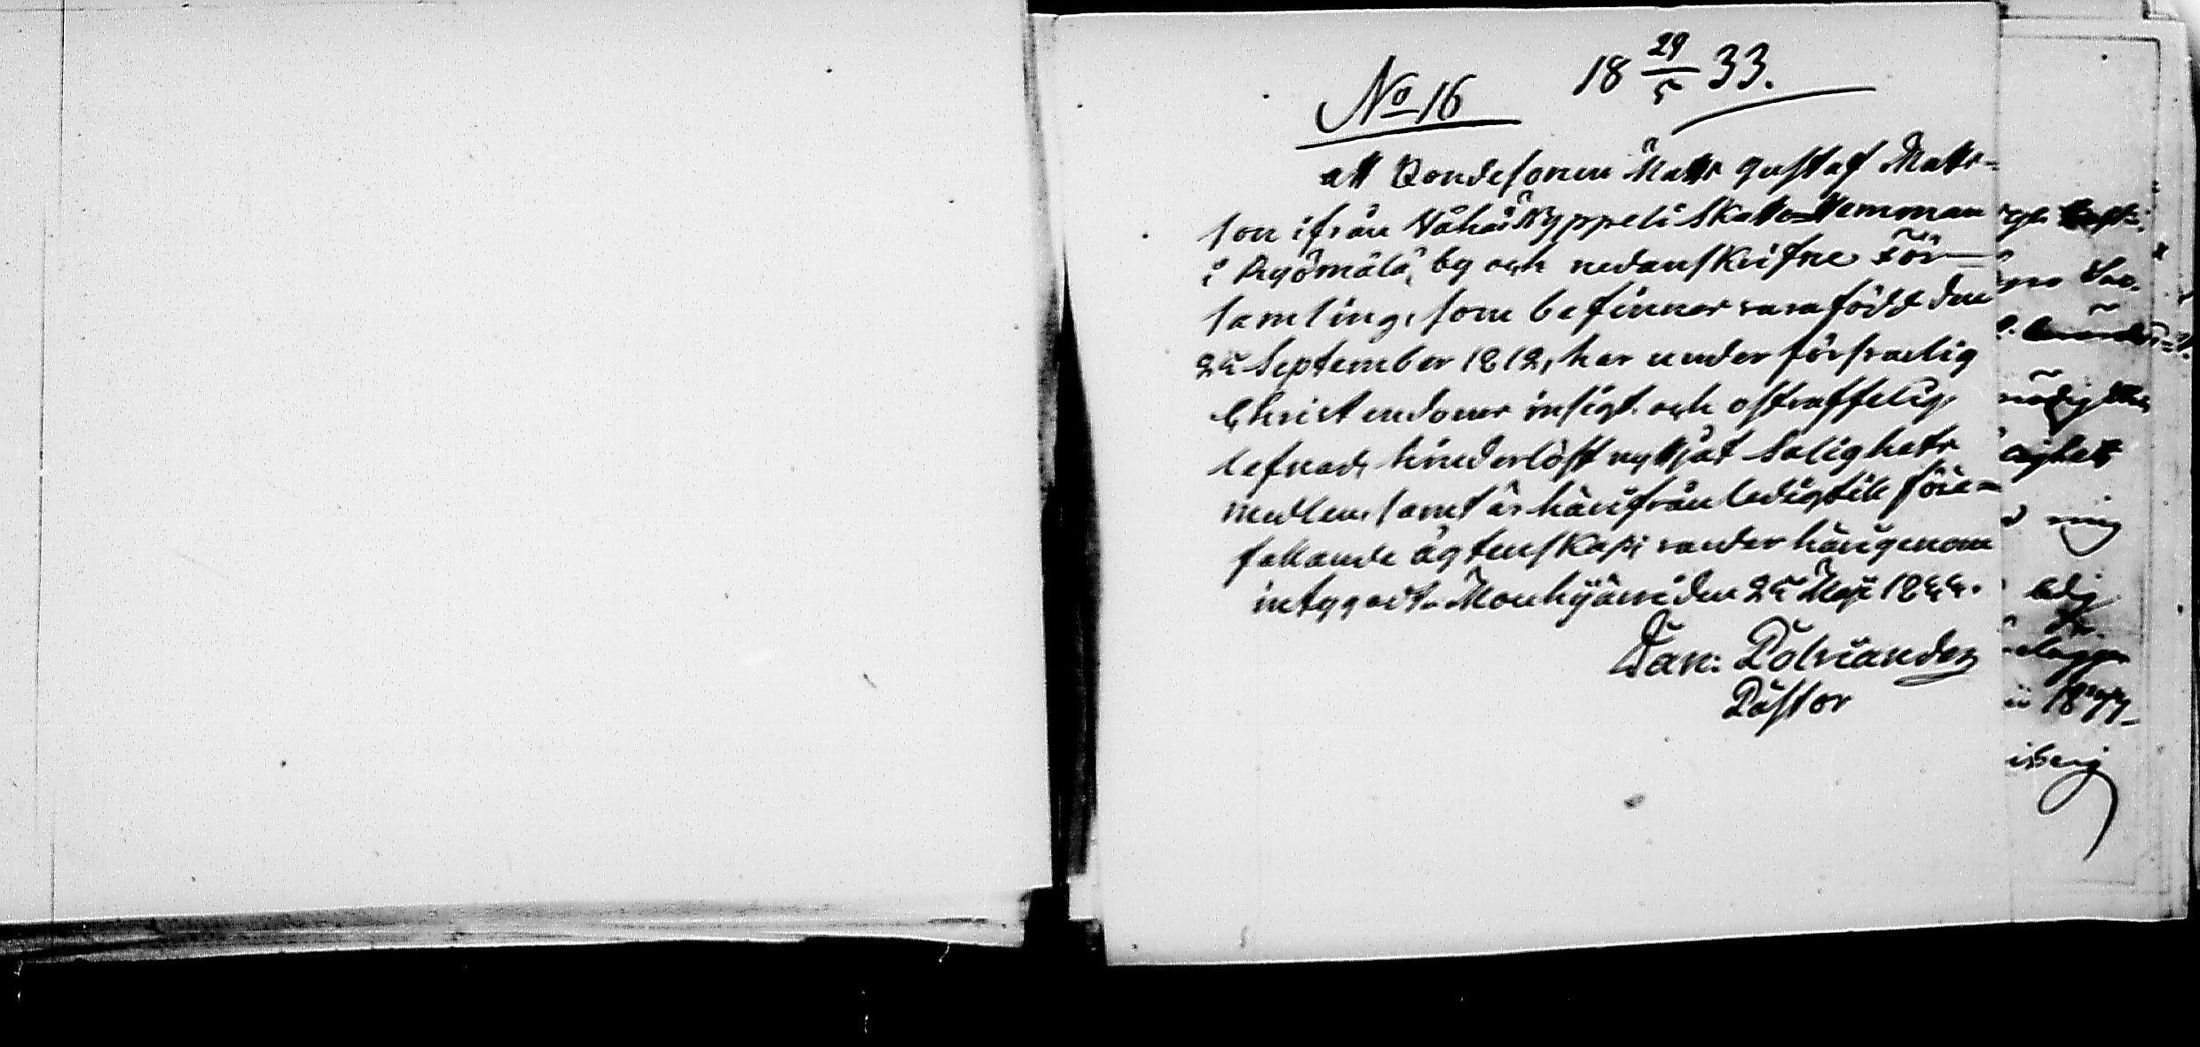 No 16
18 29/5 33.
att Bondesonen Matts Gustaf Matts-
son ifrån Vähä Kyppeli Skatte-Hemman
i Kyömälä by och nedanskrifne För-
samling, som befinner vara född den
25 September 1812, har under försvarlig
Christendoms insigt och ostraffelig
lefnad, hinderlöst nyttjat Salighets
medlen, samt är härifrån ledig till före-
fallande ägtenskap; varder härigenom
intygadt. Mouhijärvi den 25 Maji 1833.
Dan: Polviander
Pastor
mig